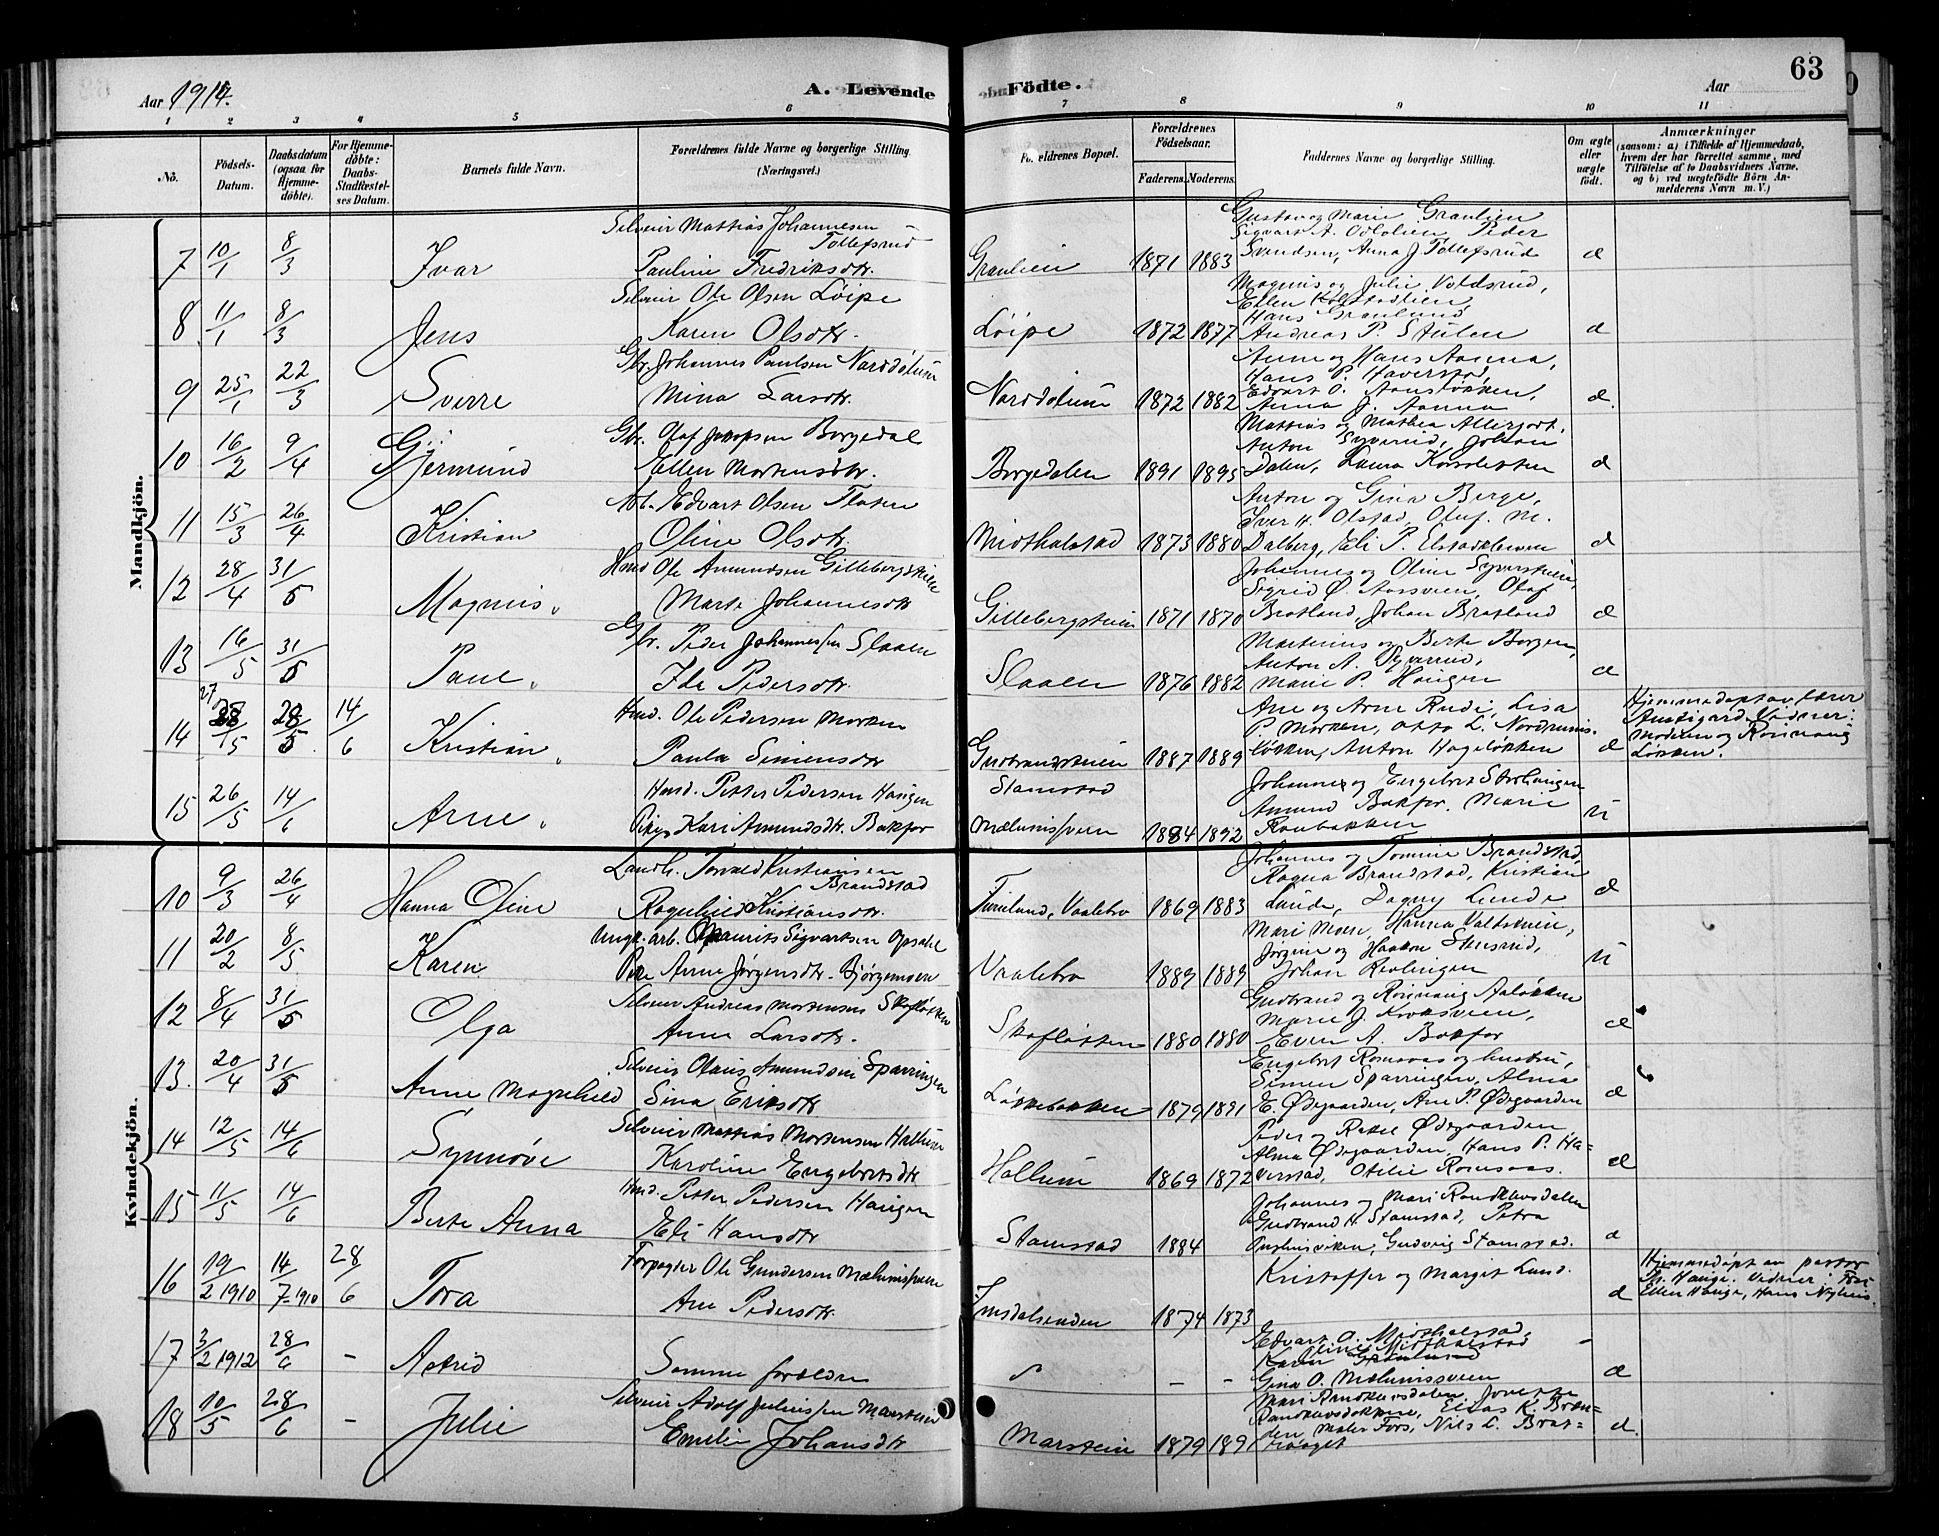 63
Aar 1914. A. Levende Födte. Aar
1 2 3 4 5 6 7 8 9 10 11
No.
Födsels-Datum.
Daabsdatum (ogsaa for Hjemme-döbte).
For Hjemme-döbte: Daabs-Stadfæstel-ses Datum.
Barnets fulde Navn.
Forældrenes fulde Navne og borgerlige Stilling. (Næringsvei.)
Forældrenes Bopæl.
Forældrenes Födselsaar.
Faderens. Moderens.
Faddernes Navne og borgerlige Stilling.
Om ægte eller uægte födt.
Anmærkninger
(saasom: a) i Tilfælde af Hjemmedaab, hvem der har forrettet samme, med Tilföielse af to Daabsvidners Navne, og b) ved uægtefödte Börn Anmelderens Navn m. V.)
Mandkjön.
7 10/1 8/3 Ivar
Selveier Mattias Johannesen Tollefsrud
Pauline Fredriksdtr.
Graulien 1871 1883
Gustav og Marie Graulien
Sigvart A. Odlolien Peder
Svendsen, Anna J. Tollefsrud
8 11/1 8/3 Jens
Selveier Ole Olsen Löipe
Karen Olsdtr.
Löipe 1872 1877
Magnus og Julie Voldsrud,
Hans Graulund
Andreas P. Stulen
9 25/1 22/3 Sverre
Gbr. Johannes Paulsen Norddölum
Mina Larsdtr.
Norddölum 1872 1882
Anne og Hans Aanna,
Hans P. Haverstad,
Edvart O. Aansløkken,
Anna J. Aanna
10 16/2 9/4 Gjermund
Gbr. Olaf Jakopsen Borgedal
Ellen Mortensdtr.
Borgedalen 1891 1895
Mattias og Mathea Allergodt,
Anton Syverud, Johan
Dalen, Laura
11 15/3 26/4 Kristian
Arb. Edvart Olsen Flaten
Oline Olsdtr.
Midthalstad 1873 1880
Anton og Gina Berge,
Iver H. Olstad, Oluf M.
Dalberg, Eli P.
12 28/4 31/5 Magnus
Hmd Ole Amundsen Gillebergsteien
Marte Johannesdtr
Gillebergsteien 1871 1870
Johannes og Oline
Sigrid Ø. Aassveen, Olaf
Bratland, Johan Bratland
13 16/5 31/5 Paul
Gbr. Peder Johannessen Slaaen
Ida Pedersdtr.
Slaaen 1876 1882
Martinius og Berte Borgen,
Anton A. Syverud,
Marie P. Haugen
14 27/5 28/5 14/6 Kristian
Hmd. Ole Pedersen Morken
Paula Simensdtr
Gudbrandsteien 1887 1889
Ane og Arne Rudi, Lisa
P. Morken, Otto L. Nordrums-
løkken, Anton Hageløkken
Hjemmedøpt av lærer
Austigard Vidner:
Moderen og Rønnaug
Løkken.
15 26/5 14/6 Arne
Hmd. Petter Pedersen Haugen
Pike Kari Amundsdtr. Bakfor
Stamstad
Mælumsveen 1884 1892
Johannes og Engebret Storhaugen
Amund Bakfor. Marie
Raubakken
Kvindekjön.
10 9/3 26/4 Hanna Oline
Landh. Torvald Kristiansen
Brandstad
Ragnhild Kristiansdtr.
Furulund, Vaalebro 1869 1883
Johannes og Tomine Brandstad,
Ragna Brandstad, Kristian
Lunde, Dagny Lunde
11 20/2 8/5 Karen
Ungk. arb. Maurits Sigvartsen Opsal
Pike Anne Jørgensdtr. Bjørgemoen
Vaalebro 1889 1889
Mari Moen, Hanna Valdsteien,
Jørgine og Haakon Stensrud,
Johan Reolingen
12 8/4 31/5 Olga
Selveier Andreas Mortensen Skafløkken
Anne Larsdtr.
Skafløkken 1880 1880
Gudbrand og Rønnaug Aaløkken
Marie J. Kroksveen,
Even A. Bakfor
13. 20/4 31/5 Anne Magnhild
Selveier Olaus Amundsen Sparringen
Sina Eriksdtr
Løkkebakken 1879 1891
Engebret Romsaas og hustru,
Simen Sparringen, Alma
E. Ødegaarden, Ane P. Ødegaarden
14 12/5 14/6 Synnöve
Selveier Mattias Mortensen Hallum
Karoline Engebretsdtr
Hallum 1869 1872
Peder og Rakel Ødegaarden
Alma Ødegaarden, Hans P. Ha-
verstad, Otilie Romsaas.
15 11/5 14/6 Berte Anna
Hmd. Petter Pedersen Haugen
Eli Hansdtr
Stamstad 1884
Johannes og Mari Randklevsdalen
Gudbrand H. Stamstad, Petra
Gudvig Stamstad.
16 19/2 1910 14/7 1910 28/6 Tora
Forpagter Ole Gundersen Mælumsveen
Ane Pedersdtr.
Imsdalsenden 1874 1873
Kristoffer og Marget Lund.
Hjemmedøpt av pastor
Th. Hauge. Vidner:
Ellen Hauge, Hans
17 3/2 1912 28/6 – Astrid
Samme forældre
– –
Edvart O. Midthalstad,
Oline Midthalstad
Gina O. Mælumsveen
18 10/5 28/6 – Julie
Selveier Adolf Juliussen Marstein
Emilie Johansdtr
Marstein 1879 1891
Mari Randklevsdalen,
Elias K. Bræn-
den, Maler Fors, Nils L. Bræt-